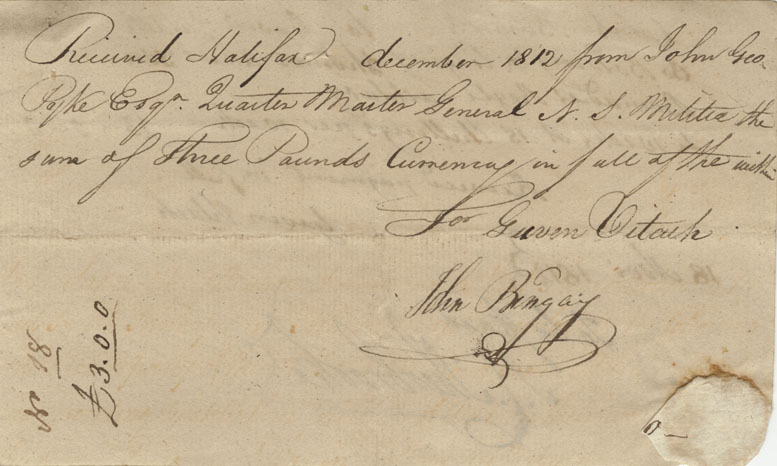 Received Halifax december 1812 from John Geo
Pyke Esqr. Quarter Master General N. S. Militia the
sum of Three Pounds Currency in full of the within
For Guven
John Bingay
No 18
£3.0.0